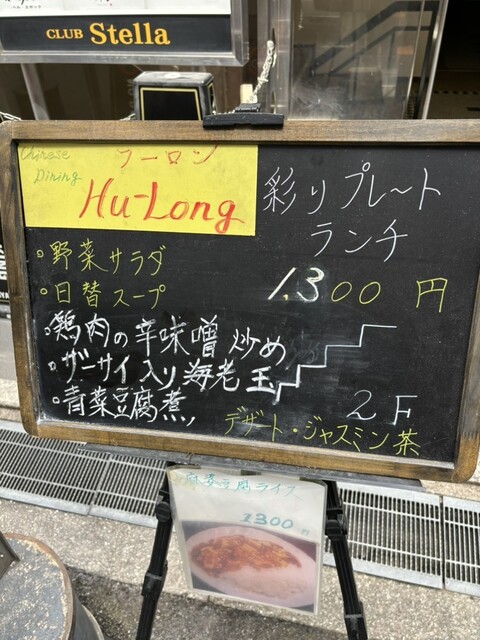 CLUB Stella
Chinese
Dining
フーロン
Hu-Long
彩りプレート
ランチ
・野菜サラダ
・日替スープ
1,300円
・鶏肉の辛味噌炒め
・ザーサイ入り海老玉
・青菜豆腐煮
2F
デザート・ジャスミン茶
麻婆豆腐ライス
1300円